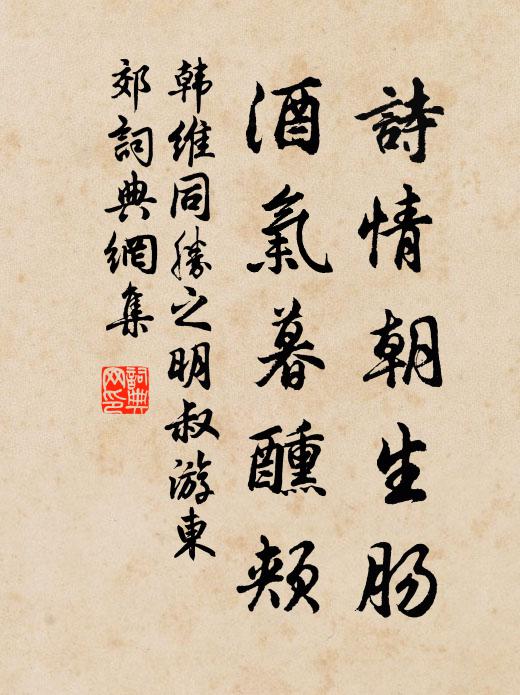 詩情朝生肠
酒氣暮醺頰
韩維同勝之明叔游東
郊詞典網集
詞典
网印